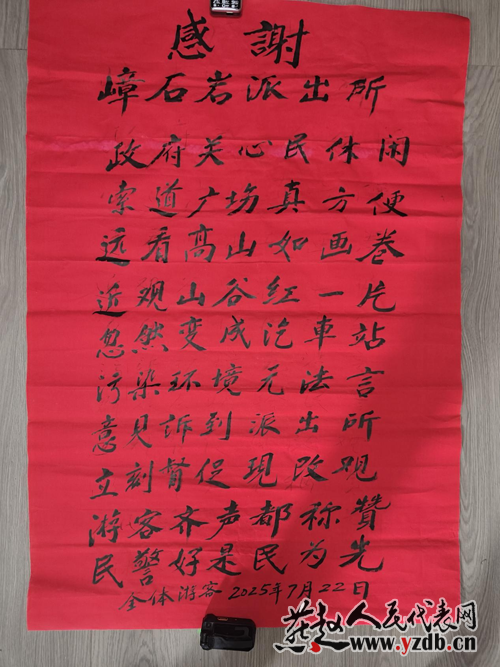 感謝
嶂石岩派出所
政府关心民休闲
索道广场真方便
远看高山如画卷
近观山谷红一片
忽然变成汽車站
污染环境无法言
意見訴到派出所
立刻督促現改观
游客齐声都称贊
民警好是民为先
全体游客 2025年7月22日
燕赵人民代表网
www.yzdb.cn